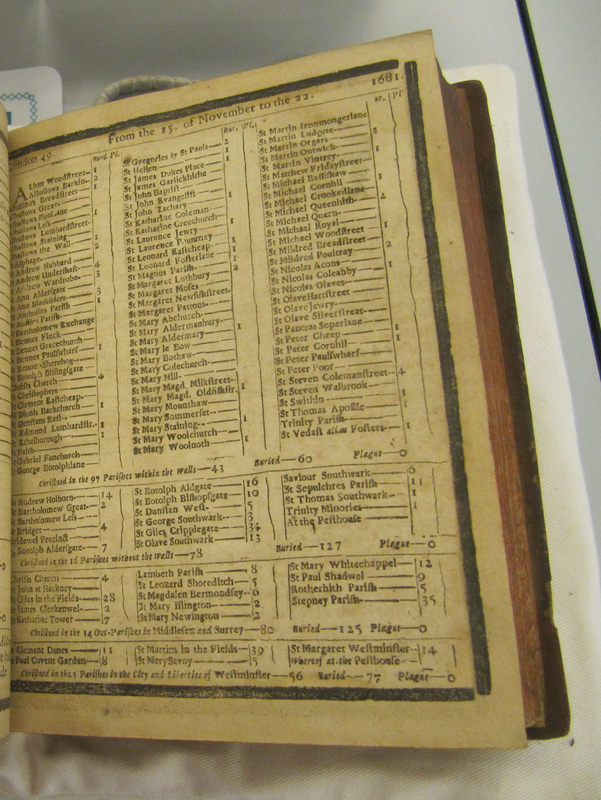 London 49. From the 15. of November to the 22. 1681.
Bur. Pl.
Alban Woodstreet 1
Alhallows Barkin 2
Alhallows Breadstreet 1
Alhallows Great
Alhallows Honilane
Alhallows Less 1
Alhallows Lumbardstreet
Alhallows Staining 1
Alhallows the Wall 2
Alphage
Andrew Hubbard
Andrew Undershaft 4
Andrew Wardrobe 3
Ann Aldersgate
Ann Blackfriers
Antholins Parish 1
Austins Parish
Bartholomew Exchange
Bennet Finck
Bennet Gracechurch
Bennet Paulswharf 1
Bennet Sherehog
Botolph Billingsgate
Christs Church 4
Christophers
Clement Eastcheap
Dionis Backchurch 1
Dunstan East
Edmund Lumbardstr. 1
Ethelborough 1
Faith
Gabriel Fenchurch
George Botolphlane
Bur. Pl.
St Gregories by St Pauls 2
St Hellen 1
St James Dukes Place 1
St James Garlickhithe
St John Baptist
St John Evangelist
St John Zachary
St Katharine Coleman
St Katharine Creechurch 1
St Laurence Jewry
St Laurence Pountney
St Leonard Eastcheap
St Leonard Fosterlane
St Magnus Parish
St Margaret Lothbury
St Margaret Moses
St Margaret Newfishstreet
St Margaret Pattons
St Mary Abchurch
St Mary Aldermanbury 1
St Mary Aldermary
St Mary le Bow
St Mary Bothaw
St Mary Colechurch
St Mary Hill
St Mary Magd. Milkstreet
St Mary Magd. Oldfishstr. 1
St Mary Mounthaw
St Mary Sommerset
St Mary Staining
St Mary Woolchurch
St Mary Woolnoth
St Martin Ironmongerlane
St Martin Ludgate
St Martin Orgars
St Martin Outwich
St Martin Vintrey
St Matthew Fridaystreet
St Michael Bassishaw
St Michael Cornhil
St Michael Crookedlane
St Michael Queenhith
St Michael Quern
St Michael Royal
St Michael Woodstreet
St Mildred Breadstreet
St Mildred Poultrey
St Nicolas Acons
St Nicolas Coleabby
St Nicolas Olaves
St Olave Hartstreet
St Olave Jewry
St Olave Silverstreet
St Pancras Soperlane
St Peter Cheap
St Peter Cornhil
St Peter Paulswharf
St Peter Poor
St Steven Colemanstreet 4
St Steven Walbrook
St Swithin
St Thomas Apostle
Trinity Parish
St Vedast alias Fosters
Christned in the 97 Parishes within the Walls—43 Buried—60 Plague—0
St Andrew Holborn 14
St Bartholomew Great 2
St Bartholomew Less
St Bridget 4
Bridewel Precinct
St Botolph Aldersgate 7
St Botolph Aldgate 16
St Botolph Bishopsgate 10
St Dunstan West 5
St George Southwark
St Giles Cripplegate 34
St Olave Southwark 13
Saviour Southwark 6
St Sepulchres Parish 11
St Thomas Southwark 1
Trinity Minories 1
At the Pesthouse
Christned in the 16 Parishes without the Walls—78 Buried—127 Plague—0
Christs Church 4
St John at Hackney
St Giles in the Fields 28
St James Clerkenwel 2
St Katharine Tower 7
Lambeth Parish 8
St Leonard Shoreditch 5
St Magdalen Bermondsey 6
St Mary Islington 2
St Mary Newington 2
St Mary Whitechappel 12
St Paul Shadwel 9
Rotherhith Parish 5
Stepney Parish 35
Christned in the 14 Out-Parishes in Middlesex and Surrey—80 Buried—125 Plague—0
St Clement Danes 11
St Paul Covent Garden 8
St Martins in the Fields 39
St Mary Savoy 5
St Margaret Westminster 14
Whereof at the Pesthouse
Christned in the 5 Parishes in the City and Liberties of Westminster—56 Buried—77 Plague—0